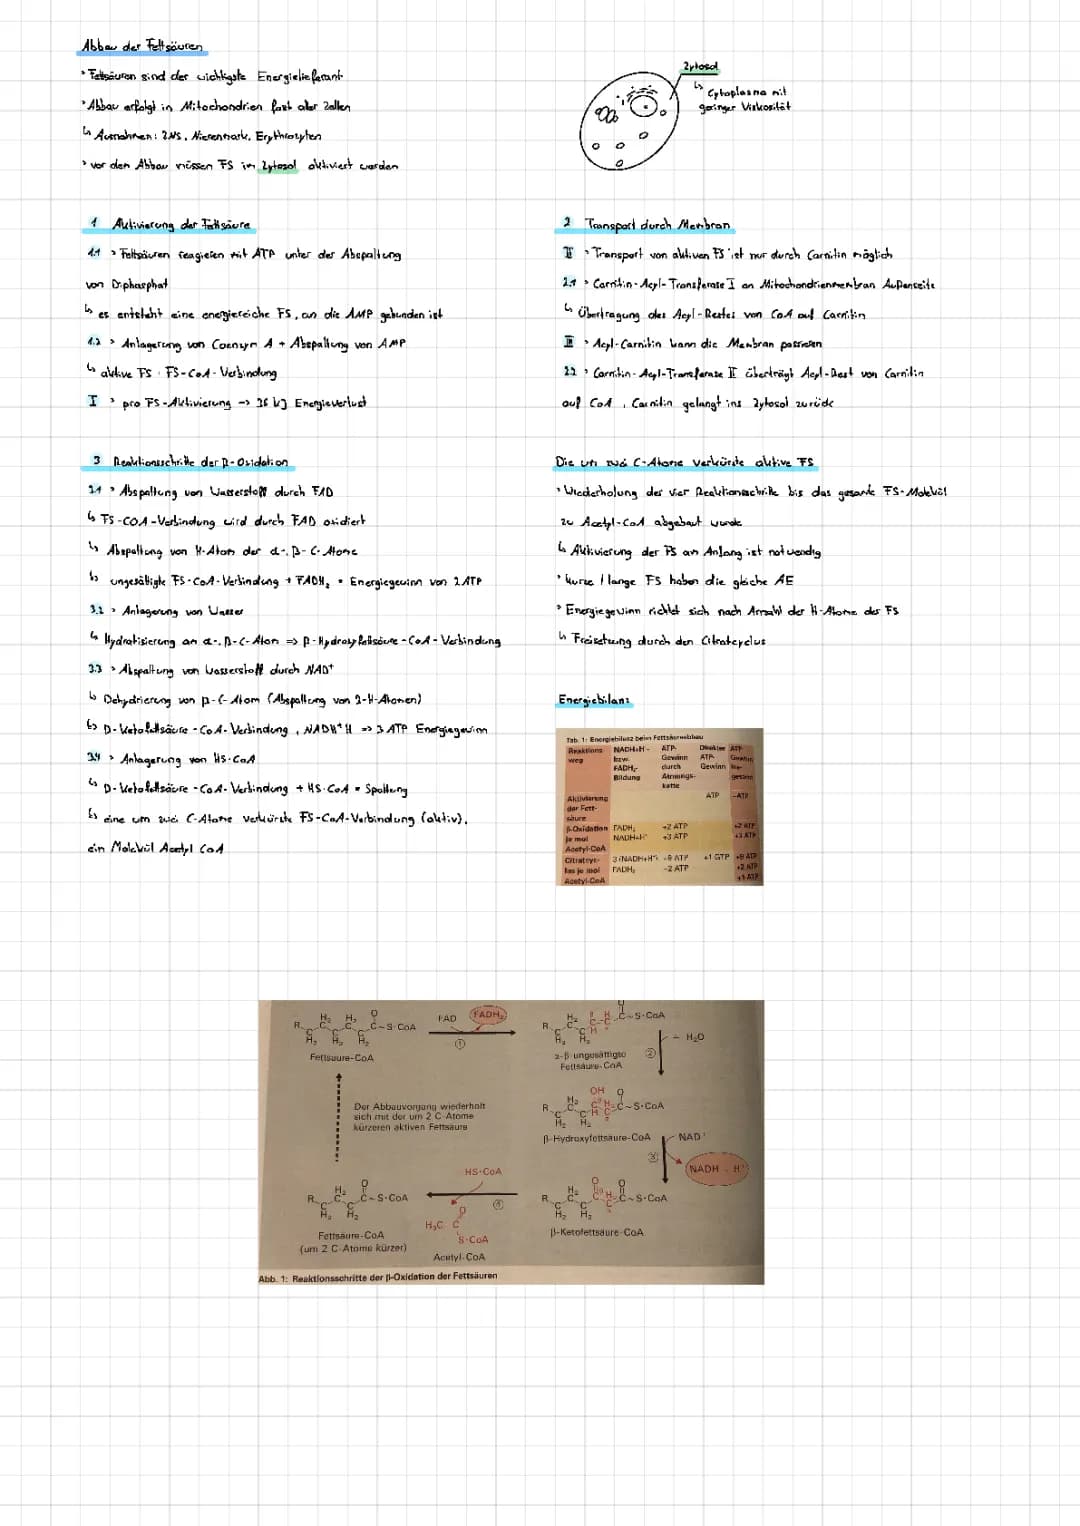 Abbau der Fettsäuren
Fettsäuren sind der wichtigste Energielieferant
Abbau erfolgt in Mitochondrien fast aller Zellen
↳ Ausnahmen: ZNS, Nierenmark, Erythrozyten
vor den Abbau müssen FS im Zytosol aktiviert werden
Zytosol
↳ Cytoplasma mit
geringer Viskosität
1 Aktivierung der Fettsäure
1.1 › Fettsäuren reagieren mit ATP unter der Abspaltung
von Diphosphat
↳ es entsteht eine energiereiche FS, an die AMP gebunden ist
1.2 › Anlagerung von Coenzym A + Abspaltung von AMP
↳ aktive FS · FS-CoA-Verbindung
I › pro FS-Aktivierung -> 36 kJ Energieverlust
2 Transport durch Membran
II › Transport von aktiven FS ist nur durch Carnitin möglich
2.1 › Carnitin-Acyl-Transferase I an Mitochondrienmembran Außenseite
↳ Übertragung des Acyl-Restes von CoA auf Carnitin
III › Acyl-Carnitin kann die Membran passieren
2.2 › Carnitin-Acyl-Transferase II überträgt Acyl-Rest von Carnitin
auf CoA, Carnitin gelangt ins Zytosol zurück
3 Reaktionsschritte der β-Oxidation
3.1 › Abspaltung von Wasserstoff durch FAD
↳ FS-COA-Verbindung wird durch FAD oxidiert
↳ Abspaltung von H-Atom der α-, β-C-Atome
↳ ungesättigte FS-CoA-Verbindung + FADH₂ = Energiegewinn von 2 ATP
3.2 › Anlagerung von Wasser
↳ Hydratisierung an α-, β-C-Atom => β-Hydroxyfettsäure-CoA-Verbindung
3.3 › Abspaltung von Wasserstoff durch NAD⁺
↳ Dehydrierung von β-C-Atom (Abspaltung von 2-H-Atomen)
↳ β-Ketofettsäure-CoA-Verbindung, NADH⁺H => 3 ATP Energiegewinn
3.4 › Anlagerung von HS-CoA
↳ β-Ketofettsäure-CoA-Verbindung + HS-CoA = Spaltung
↳ eine um zwei C-Atome verkürzte FS-CoA-Verbindung (aktiv),
ein Molekül Acetyl CoA
Die um zwei C-Atome verkürzte aktive FS
Wiederholung der vier Reaktionsschritte bis das gesamte FS-Molekül
zu Acetyl-CoA abgebaut wurde
↳ Aktivierung der FS an Anfang ist notwendig
kurze / lange FS haben die gleiche AE
Energiegewinn richtet sich nach Anzahl der H-Atome der FS
↳ Freisetzung durch den Citratcyclus
Energiebilanz
Tab. 1: Energiebilanz beim Fettsäureabbau
Reaktionsweg NADH+H⁺- bzw. FADH₂-Bildung ATP-Gewinn durch Atmungskette Direkter ATP-Gewinn ATP-Gewinn insgesamt
Aktivierung der Fettsäure ATP -ATP
β-Oxidation je mol Acetyl-CoA FADH₂ +2 ATP +2 ATP
NADH+H⁺ +3 ATP +3 ATP
Citratzyklus je mol Acetyl-CoA 3 (NADH+H⁺) +9 ATP +1 GTP +9 ATP
FADH₂ -2 ATP +2 ATP
+1 ATP
R H₂ C H₂ C C O ~S-CoA
Fettsäure-CoA
FAD FADH₂
①
2-β-ungesättigte
Fettsäure-CoA
② H₂O
OH O
β-Hydroxyfettsäure-CoA
NAD⁺
③
NADH H⁺
β-Ketofettsäure-CoA
Der Abbauvorgang wiederholt
sich mit der um 2 C-Atome
kürzeren aktiven Fettsäure
HS-CoA
④
H₃C C O
S-CoA
Acetyl-CoA
Fettsäure-CoA
(um 2 C-Atome kürzer)
Abb. 1: Reaktionsschritte der β-Oxidation der Fettsäuren